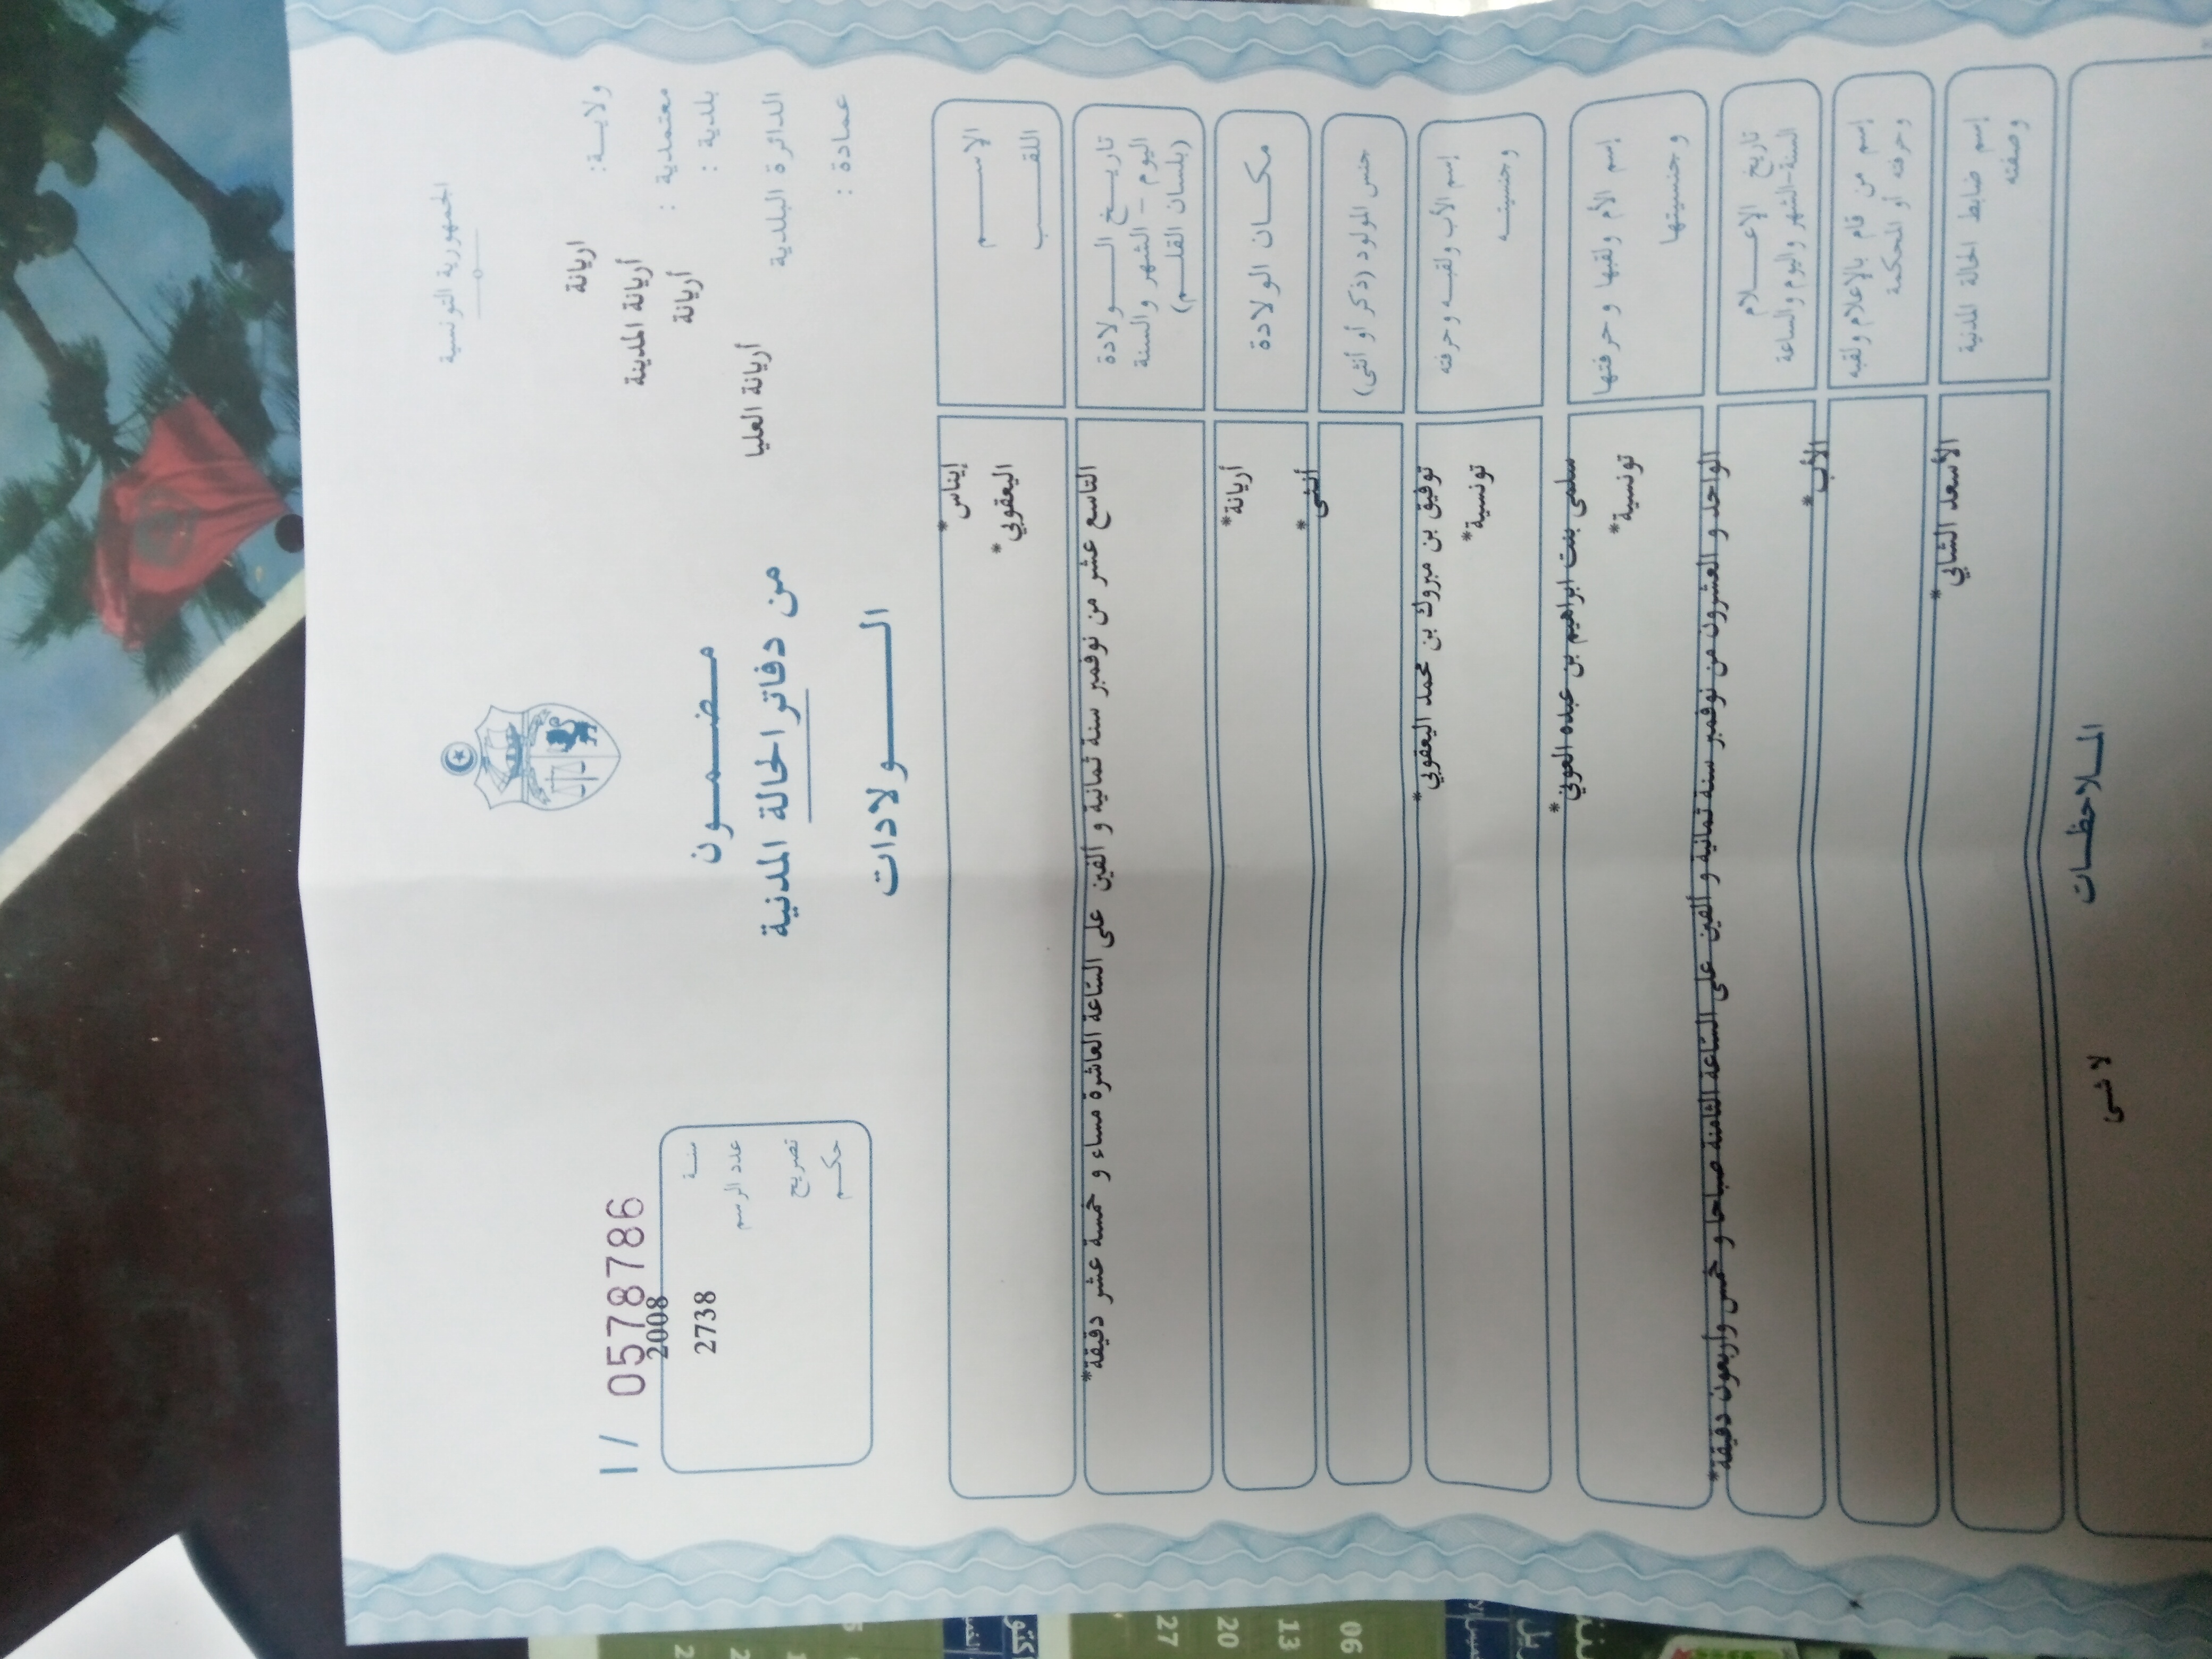 الجمهورية التونسية
ولايـــة: اريانة
معتمدية : أريانة المدينة
بلدية : أريانة
الدائرة البلدية أريانة العليا
عمادة :
مـضـمـــون
من دفاتر الحالة المدنية
الـــــولادات
I / 05788786
سنـة 2008
عدد الرسم 2738
تصريح
حكـــم
الإســـــم إيناس*
اللقـــــب اليعقوبي*
تاريـــخ الـــــولادة
اليوم - الشهر والسنة
(بلسان القلـــم)
التاسع عشر من نوفمبر سنة ثمانية و ألفين على الساعة العاشرة مساء و خمسة عشر دقيقة*
مكـــان الولادة أريانة*
جنس المولود (ذكر أو أنثى) أنثى*
إسم الأب ولقبـه وحرفته توفيق بن مبروك بن محمد اليعقوبي*
وجنسيتـــه تونسية*
إسم الأم ولقبها وحرفتها سلمى بنت ابراهيم بن عبده العوني*
وجنسيتها تونسية*
تاريخ الإعـــلام
السنة-الشهر واليوم والساعة
الواحد و العشرون من نوفمبر سنة ثمانية و ألفين على الساعة الثامنة صباحا و خمس وأربعون دقيقة*
إسم من قام بالإعلام ولقبه
وحرفته أو المحكمة
الأب*
إسم ضابط الحالة المدنية
وصفته
الأسعد الشابي*
المـلاحظـــات
لا شى
06
13
20
27